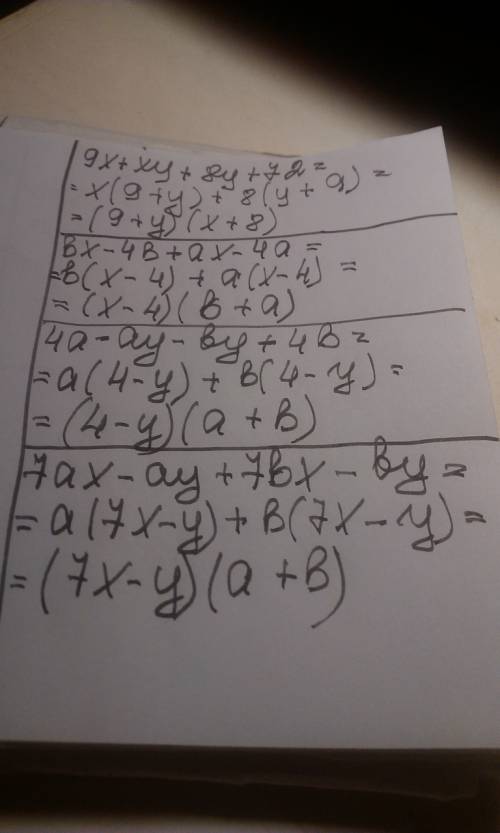 9x+xy+8y+72=
=x(9+y)+8(y+9)=
=(9+y)(x+8)
вx-4в+ax-4a=
=в(x-4)+a(x-4)=
=(x-4)(в+a)
4a-ay-вy+4в=
=a(4-y)+в(4-y)=
=(4-y)(a+в)
7ax-ay+7bx-вy=
=a(7x-y)+в(7x-y)=
=(7x-y)(a+в)